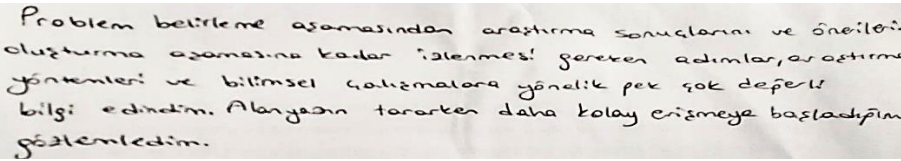 Problem belirleme aşamasından araştırma sonuçlarını ve önerileri
oluşturma aşamasına kadar izlenmesi gereken adımlar, araştırma
yöntemleri ve bilimsel çalışmalara yönelik pek çok değerli
bilgi edindim. Alanyazın tararken daha kolay erişmeye başladığım
gözlemledim.